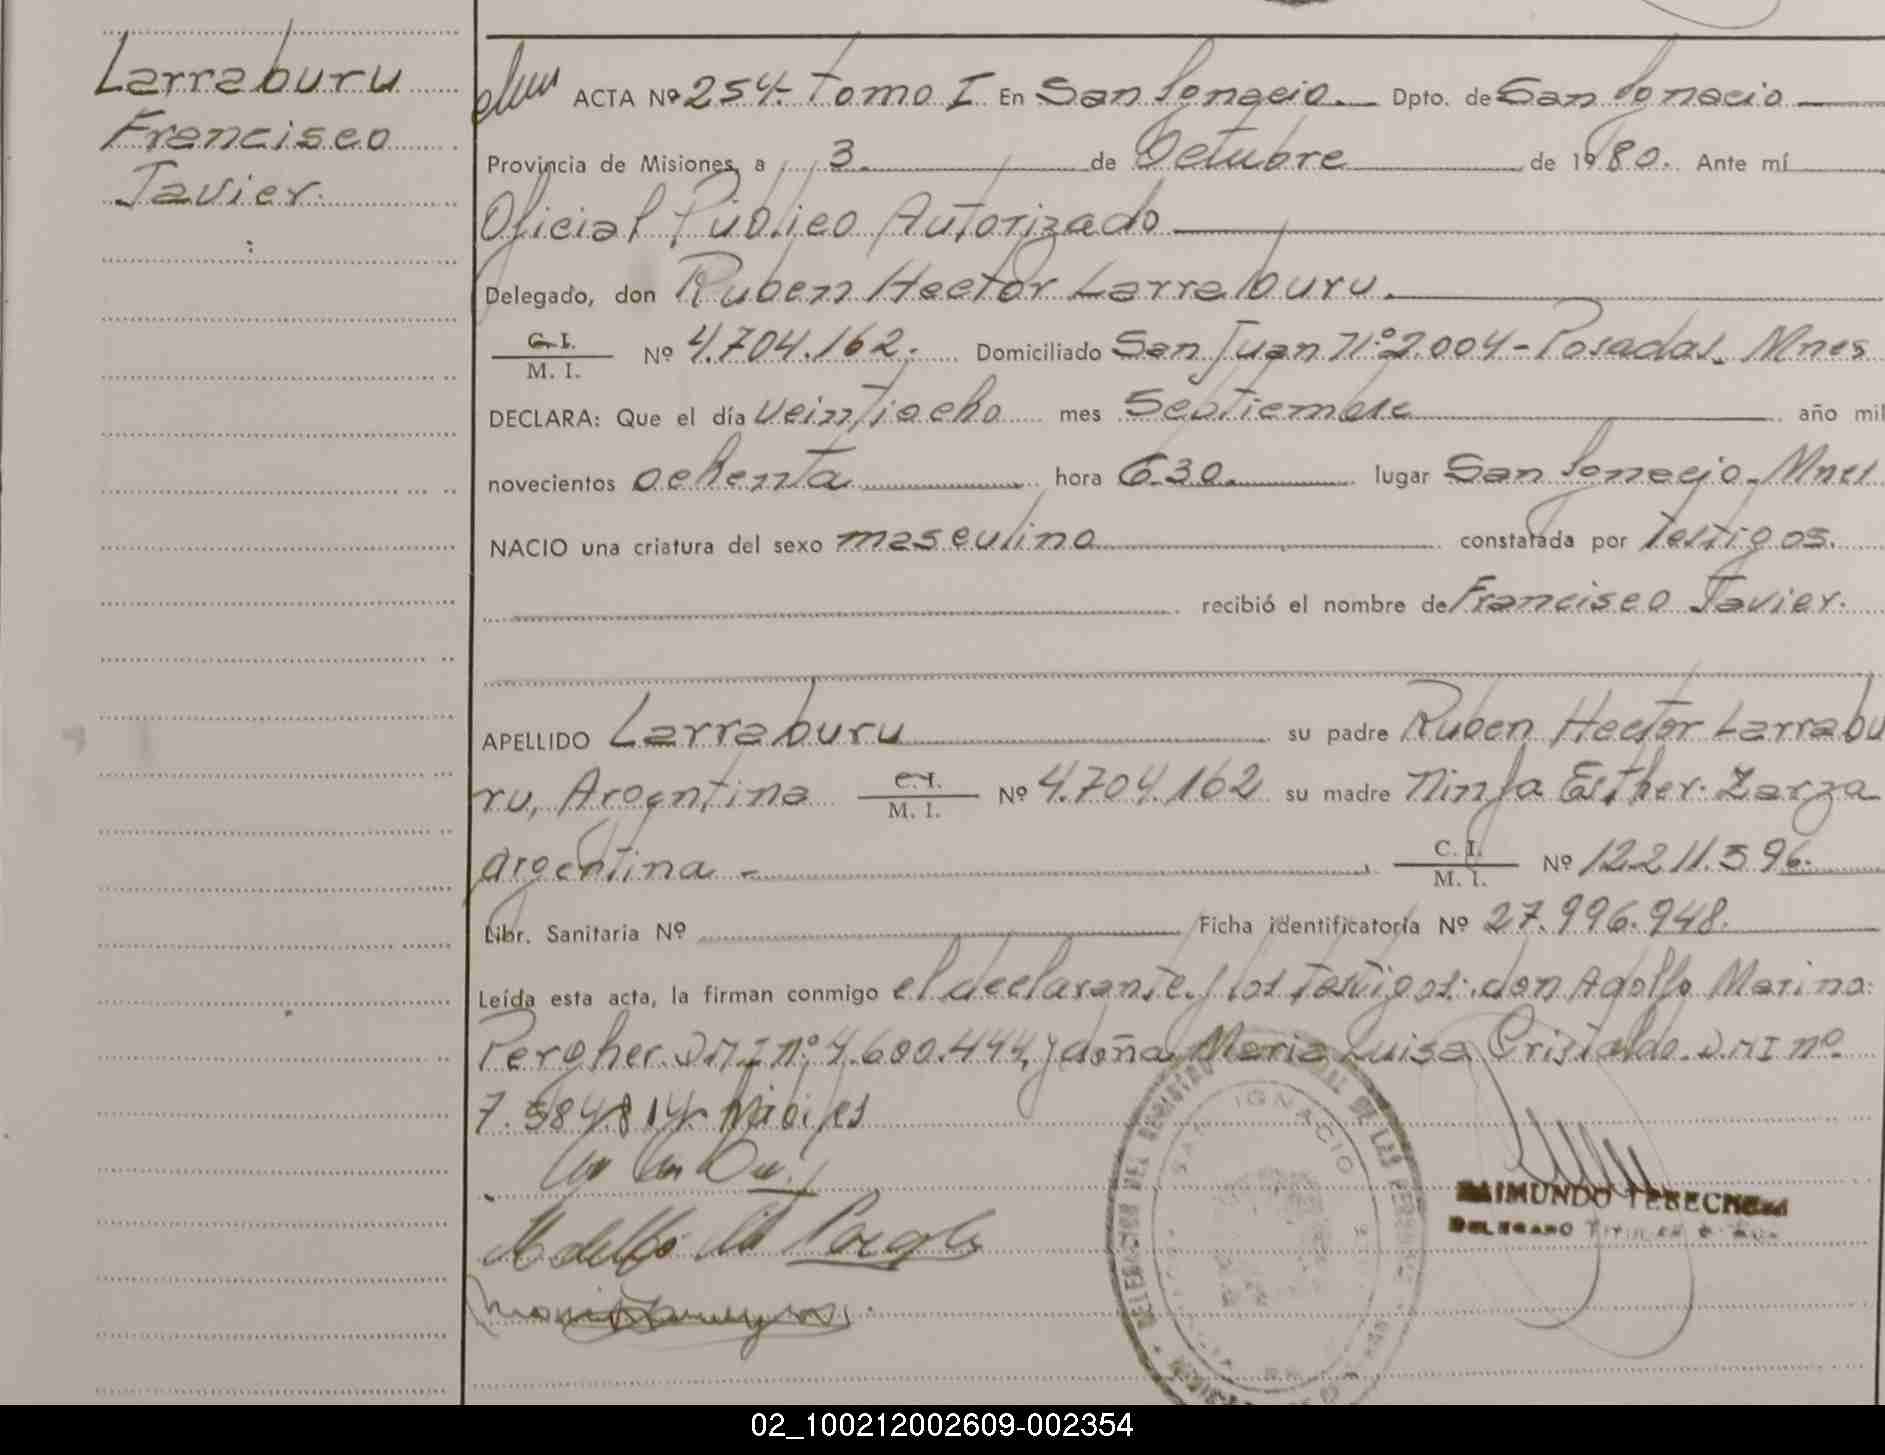 Larraburu
Francisco
Javier.
ACTA Nº 254.- Tomo I En San Ignacio. Dpto. de San Ignacio
Provincia de Misiones, a 3 de Octubre de 1980. Ante mí
Oficial Público Autorizado
Delegado, don Ruben Hector Larraburu.
C. I.
M. I. Nº 4.704.162. Domiciliado San Juan nº 2.004 - Posadas. Mnes
DECLARA: Que el día veintiocho mes Septiembre año mil
novecientos ochenta hora 6.30. lugar San Ignacio. Mnes
NACIO una criatura del sexo masculino constatada por testigos.
recibió el nombre de Francisco Javier.
APELLIDO Larraburu su padre Ruben Hector Larrabu
ru, Argentina C. I. M. I. Nº 4.704.162 su madre Ninfa Esther Zarza
argentina - C. I. M. I. Nº 12.211.596.
Libr. Sanitaria Nº Ficha identificatoria Nº 27.996.948.
Leída esta acta, la firman conmigo el declarante y los testigos: don Adolfo Marino
Pergher. DNI nº 7.600.444, y doña Maria Luisa Cristaldo. DNI nº
7.584.814.
SAN IGNACIO
RAIMUNDO
DELEGADO
02_100212002609-002354